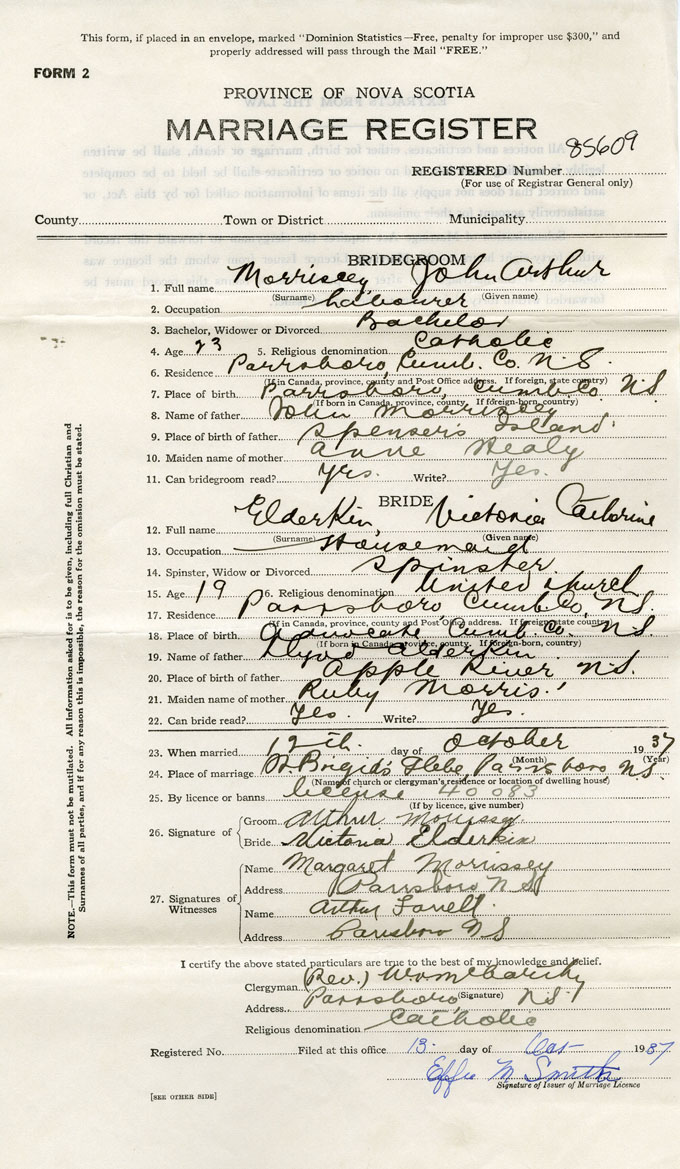 This form, if placed in an envelope, marked "Dominion Statistics—Free, penalty for improper use $300," and
properly addressed will pass through the Mail "FREE."
FORM 2
PROVINCE OF NOVA SCOTIA
MARRIAGE REGISTER
REGISTERED Number 85609
(For use of Registrar General only)
County Town or District Municipality
BRIDEGROOM
1. Full name Morrissey John Arthur
(Surname) (Given name)
2. Occupation Labourer
3. Bachelor, Widower or Divorced Bachelor
4. Age 23 5. Religious denomination Catholic
6. Residence Parrsboro, Cumb. Co. N.S.
(If in Canada, province, county and Post Office address. If foreign, state country)
7. Place of birth Parrsboro, Cumb. Co. N S
(If born in Canada, province, county. If foreign-born, country)
8. Name of father John Morrissey
9. Place of birth of father Spenser's Island.
10. Maiden name of mother Anne Healy
11. Can bridegroom read? Yes. Write? Yes.
BRIDE
12. Full name Elderkin, Victoria Catherine
(Surname) (Given name)
13. Occupation Housemaid
14. Spinster, Widow or Divorced Spinster.
15. Age 19 16. Religious denomination United Church
17. Residence Parrsboro Cumb. Co, N.S.
(If in Canada, province, county and Post Office address. If foreign state country)
18. Place of birth Advocate, Cumb. Co. N.S.
(If born in Canada, province, county. If foreign-born, country)
19. Name of father Elderkin
20. Place of birth of father Apple River N.S.
21. Maiden name of mother Ruby Morris.
22. Can bride read? Yes. Write? Yes.
23. When married 12th. day of October 1937
(Month) (Year)
24. Place of marriage St. Brigid's Glebe, Parrsboro N.S.
(Name of church or clergyman's residence or location of dwelling house)
25. By licence or banns license 40083
(If by licence, give number)
26. Signature of Groom Arthur Morrissey
Bride Victoria Elderkin
27. Signatures of Witnesses
Name Margaret Morrissey
Address Parrsboro N S
Name Arthur Farrell.
Address Parrsboro N S
I certify the above stated particulars are true to the best of my knowledge and belief.
Clergyman (Rev.)
(Signature)
Address Parrsboro N.S.
Religious denomination Catholic
Registered No. Filed at this office 13. day of Oct 1937
Effie M Smith
Signature of Issuer of Marriage Licence
[SEE OTHER SIDE]
NOTE.—This form must not be mutilated. All information asked for is to be given, including full Christian and
Surnames of all parties, and if for any reason this is impossible, the reason for the omission must be stated.